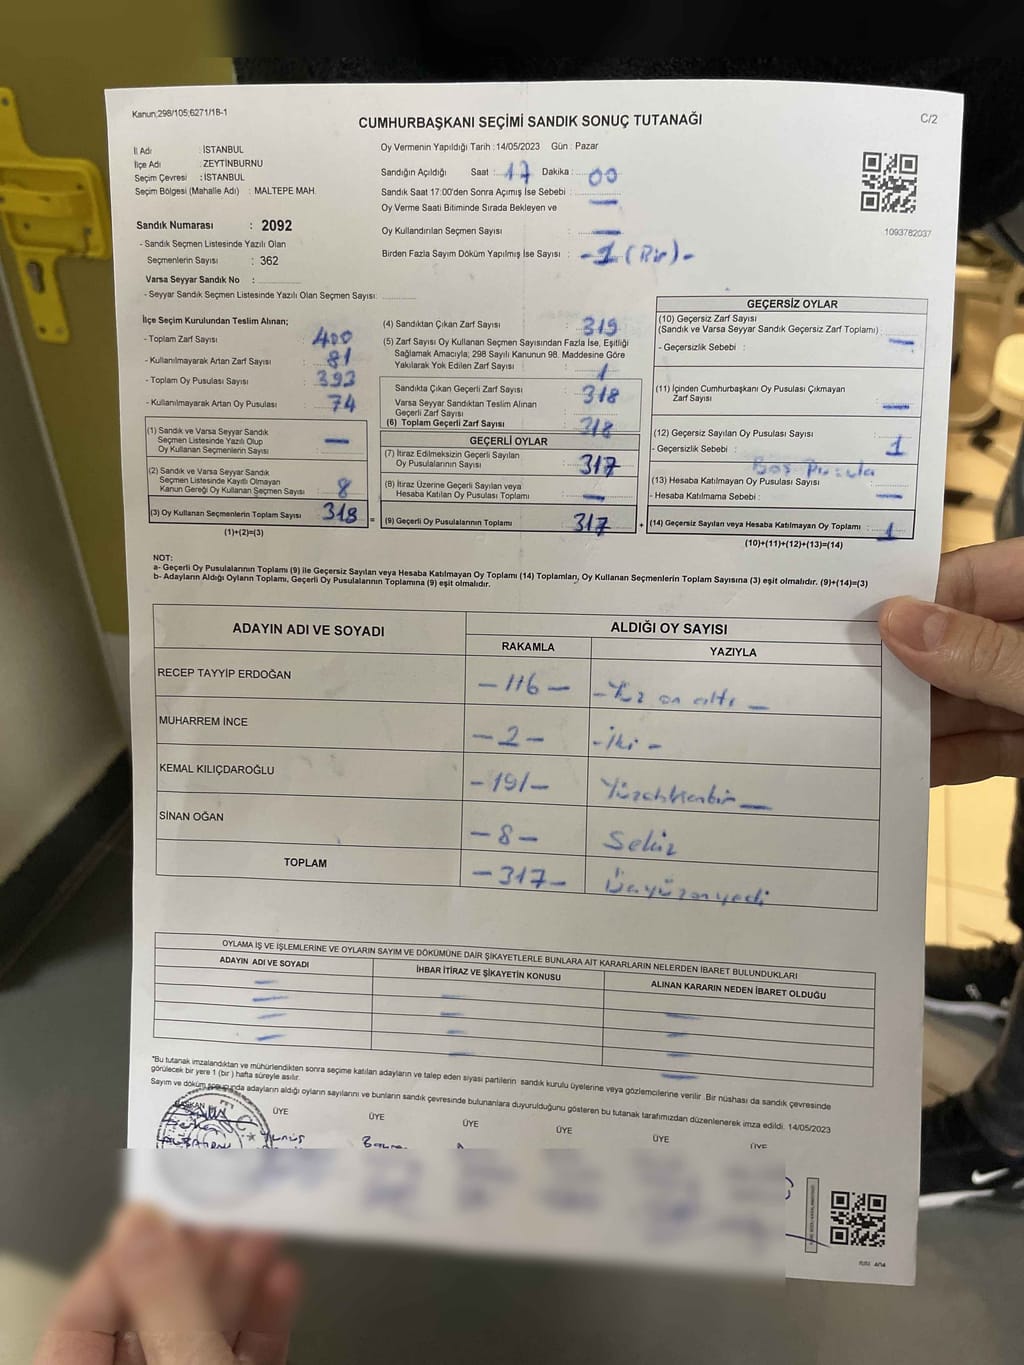 Kanun;298/105;6271/18-1
CUMHURBAŞKANI SEÇİMİ SANDIK SONUÇ TUTANAĞI
C/2
İl Adı : İSTANBUL
İlçe Adı : ZEYTİNBURNU
Seçim Çevresi : İSTANBUL
Seçim Bölgesi (Mahalle Adı) : MALTEPE MAH.
Oy Vermenin Yapıldığı Tarih : 14/05/2023 Gün : Pazar
Sandığın Açıldığı Saat : 17 Dakika : 00
Sandık Saat 17:00'den Sonra Açılmış İse Sebebi :
Oy Verme Saati Bitiminde Sırada Bekleyen ve —
Oy Kullandırılan Seçmen Sayısı : —
Birden Fazla Sayım Döküm Yapılmış İse Sayısı : -1 (Bir)-
1093782037
Sandık Numarası : 2092
- Sandık Seçmen Listesinde Yazılı Olan
Seçmenlerin Sayısı : 362
Varsa Seyyar Sandık No :
- Seyyar Sandık Seçmen Listesinde Yazılı Olan Seçmen Sayısı:
İlçe Seçim Kurulundan Teslim Alınan;
- Toplam Zarf Sayısı : 400
- Kullanılmayarak Artan Zarf Sayısı : 81
- Toplam Oy Pusulası Sayısı : 393
- Kullanılmayarak Artan Oy Pusulası : 74
(1) Sandık ve Varsa Seyyar Sandık
Seçmen Listesinde Yazılı Olup
Oy Kullanan Seçmenlerin Sayısı : —
(2) Sandık ve Varsa Seyyar Sandık
Seçmen Listesinde Kayıtlı Olmayan
Kanun Gereği Oy Kullanan Seçmen Sayısı : 8
(3) Oy Kullanan Seçmenlerin Toplam Sayısı : 318
(1)+(2)=(3)
(4) Sandıktan Çıkan Zarf Sayısı : 319
(5) Zarf Sayısı Oy Kullanan Seçmen Sayısından Fazla İse, Eşitliği
Sağlamak Amacıyla; 298 Sayılı Kanunun 98. Maddesine Göre
Yakılarak Yok Edilen Zarf Sayısı : 1
Sandıkta Çıkan Geçerli Zarf Sayısı : 318
Varsa Seyyar Sandıktan Teslim Alınan
Geçerli Zarf Sayısı :
(6) Toplam Geçerli Zarf Sayısı : 318
GEÇERLİ OYLAR
(7) İtiraz Edilmeksizin Geçerli Sayılan
Oy Pusulalarının Sayısı : 317
(8) İtiraz Üzerine Geçerli Sayılan veya
Hesaba Katılan Oy Pusulası Toplamı : —
= (9) Geçerli Oy Pusulalarının Toplamı : 317 +
GEÇERSİZ OYLAR
(10) Geçersiz Zarf Sayısı
(Sandık ve Varsa Seyyar Sandık Geçersiz Zarf Toplamı) :
- Geçersizlik Sebebi : —
(11) İçinden Cumhurbaşkanı Oy Pusulası Çıkmayan
Zarf Sayısı : —
(12) Geçersiz Sayılan Oy Pusulası Sayısı : 1
- Geçersizlik Sebebi : Boş Pusula
(13) Hesaba Katılmayan Oy Pusulası Sayısı :
- Hesaba Katılmama Sebebi : —
(14) Geçersiz Sayılan veya Hesaba Katılmayan Oy Toplamı : 1
(10)+(11)+(12)+(13)=(14)
NOT:
a- Geçerli Oy Pusulalarının Toplamı (9) ile Geçersiz Sayılan veya Hesaba Katılmayan Oy Toplamı (14) Toplamları, Oy Kullanan Seçmenlerin Toplam Sayısına (3) eşit olmalıdır. (9)+(14)=(3)
b- Adayların Aldığı Oyların Toplamı, Geçerli Oy Pusulalarının Toplamına (9) eşit olmalıdır.
ADAYIN ADI VE SOYADI
ALDIĞI OY SAYISI
RAKAMLA YAZIYLA
RECEP TAYYİP ERDOĞAN -116- -Yüz on altı-
MUHARREM İNCE -2- -İki-
KEMAL KILIÇDAROĞLU -191- Yüzdoksanbir-
SİNAN OĞAN -8- Sekiz
TOPLAM -317- Üçyüzonyedi
OYLAMA İŞ VE İŞLEMLERİNE VE OYLARIN SAYIM VE DÖKÜMÜNE DAİR ŞİKAYETLERLE BUNLARA AİT KARARLARIN NELERDEN İBARET BULUNDUKLARI
ADAYIN ADI VE SOYADI İHBAR İTİRAZ VE ŞİKAYETİN KONUSU ALINAN KARARIN NEDEN İBARET OLDUĞU
*Bu tutanak imzalandıktan ve mühürlendikten sonra seçime katılan adayların ve talep eden siyasi partilerin sandık kurulu üyelerine veya gözlemcilerine verilir. Bir nüshası da sandık çevresinde
görülecek bir yere 1 (bir) hafta süreyle asılır.
Sayım ve döküm sonucunda adayların aldığı oyların sayılarını ve bunların sandık çevresinde bulunanlara duyurulduğunu gösteren bu tutanak tarafımızdan düzenlenerek imza edildi. 14/05/2023
BAŞKAN ÜYE ÜYE ÜYE ÜYE ÜYE ÜYE